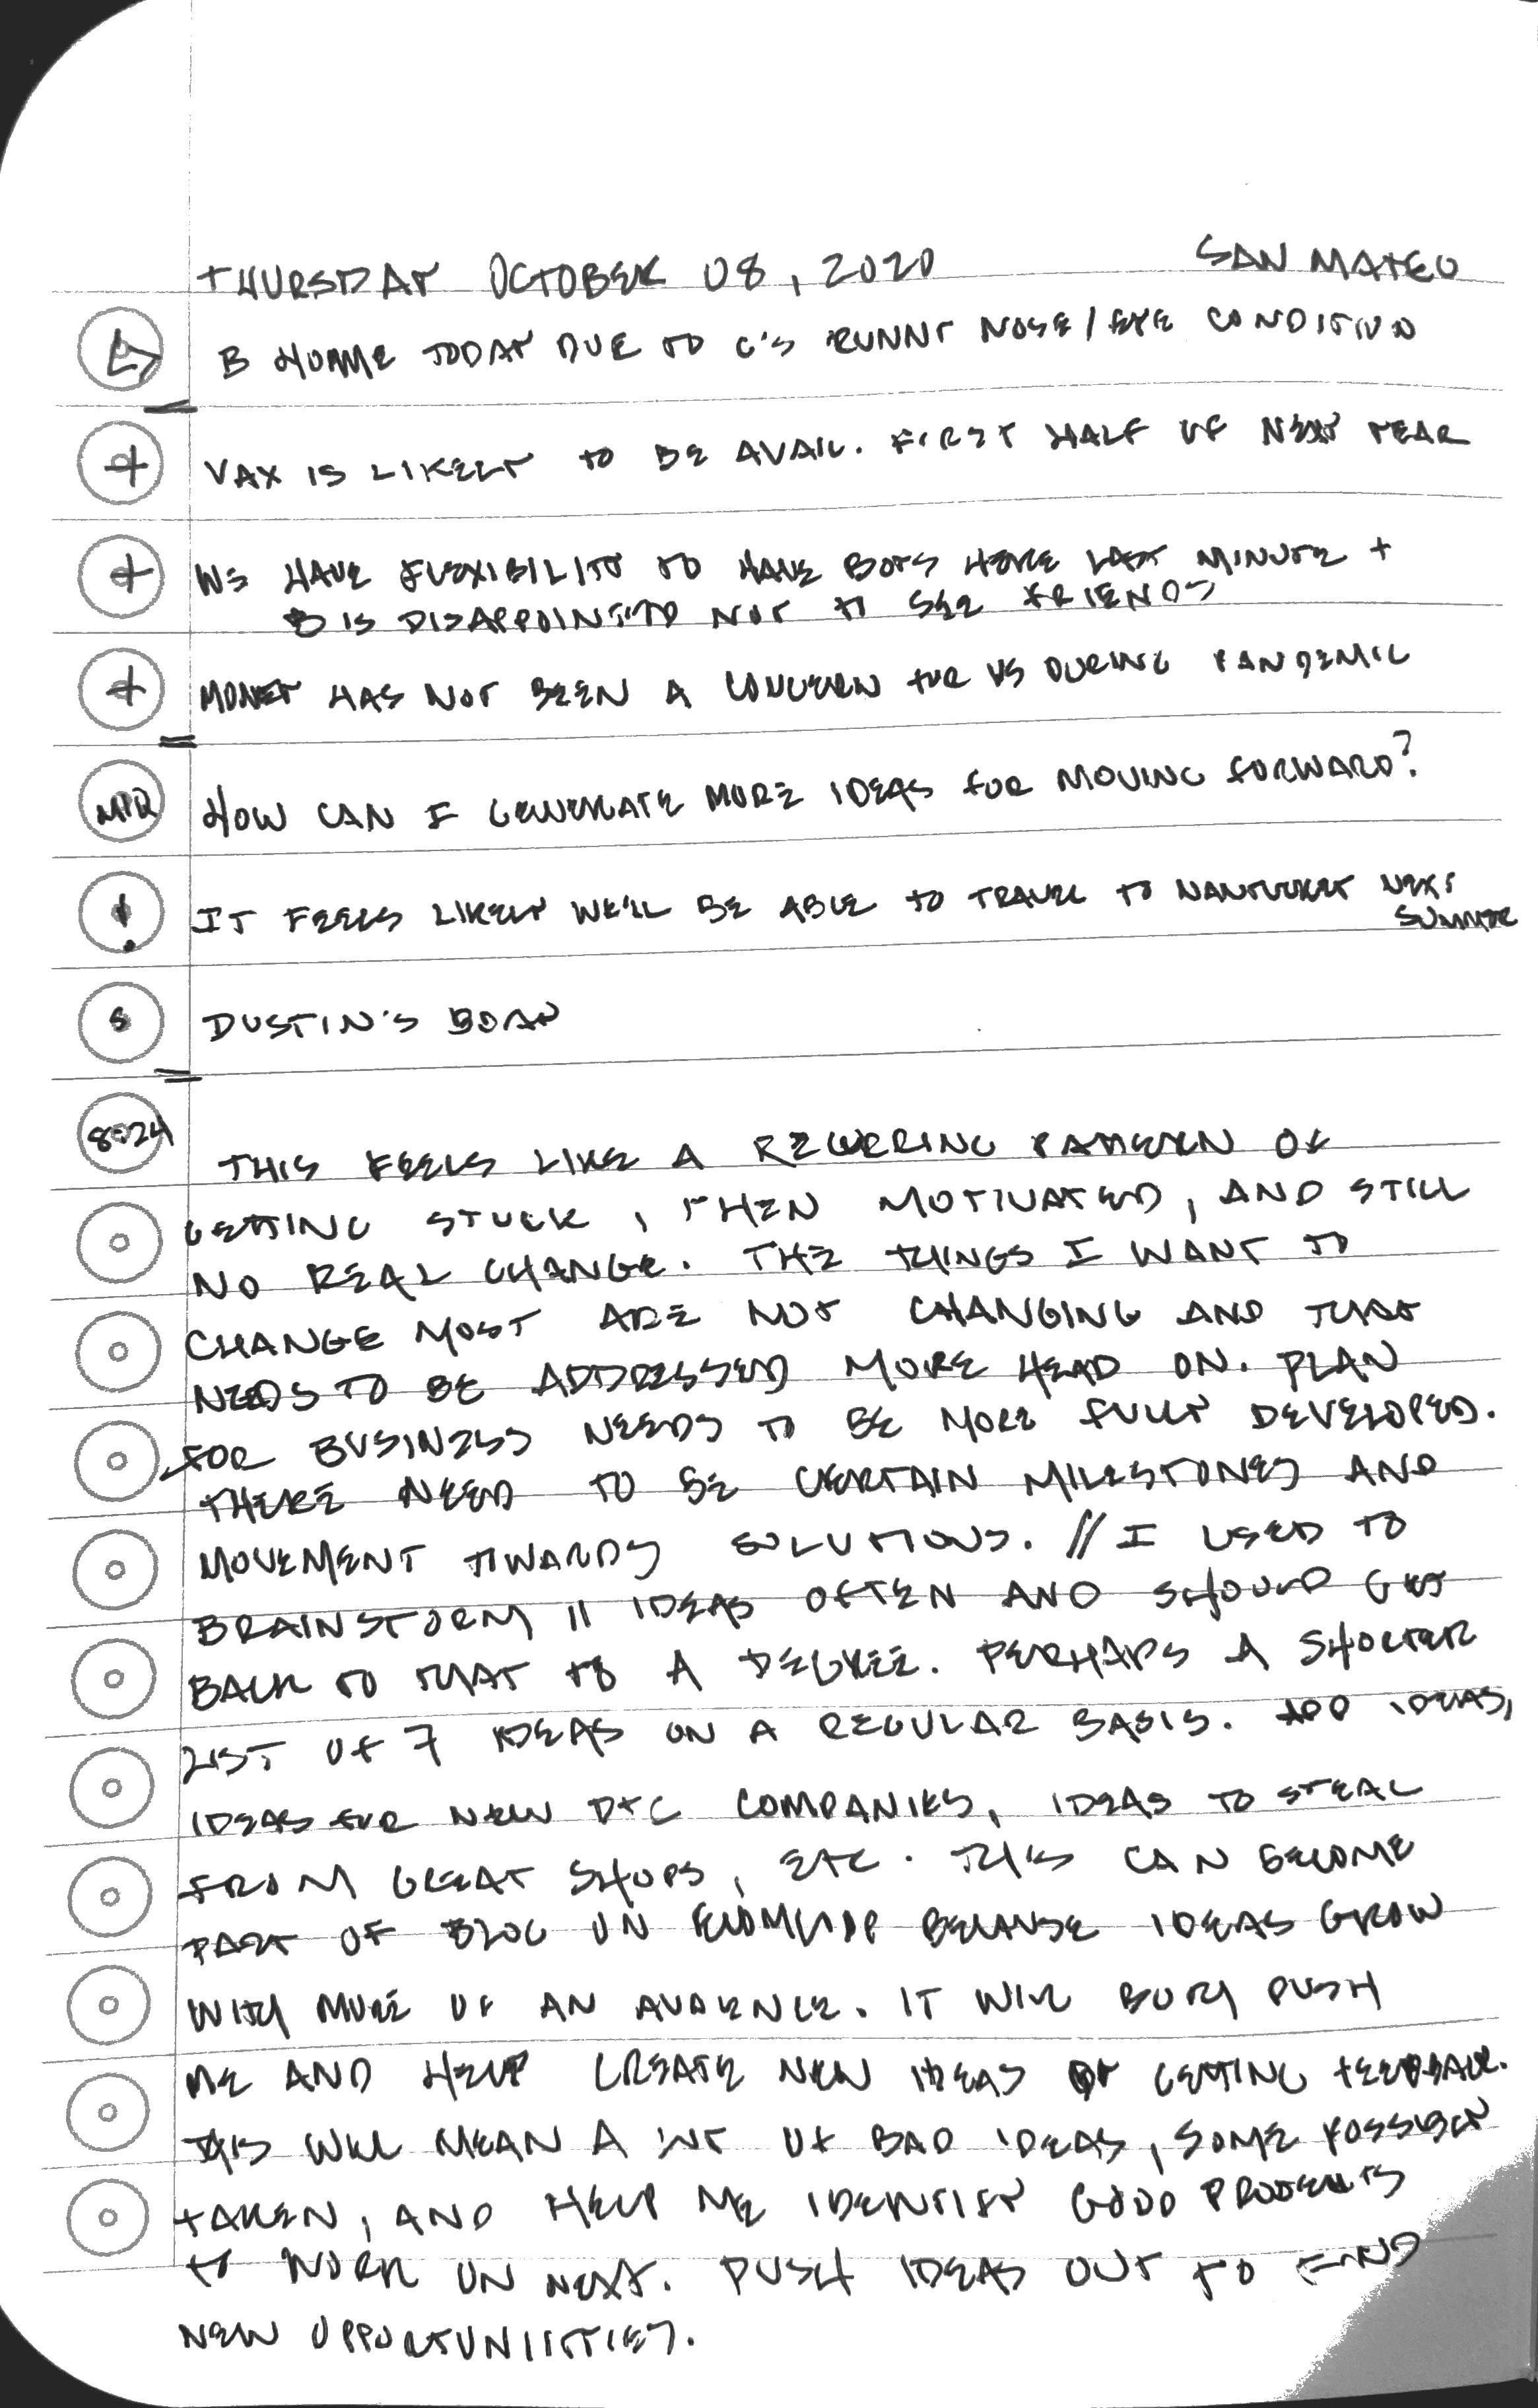 THURSDAY OCTOBER 08, 2020 SAN MATEO
B HOME TODAY DUE TO C'S RUNNY NOSE/EYE CONDITION
+ VAX IS LIKELY TO BE AVAIL. FIRST HALF OF NEXT YEAR
+ WE HAVE FLEXIBILITY TO HAVE BOYS HOME LAST MINUTE +
B IS DISAPPOINTED NOT TO SEE FRIENDS
+ MONEY HAS NOT BEEN A CONCERN FOR US DURING PANDEMIC
HOW CAN I GENERATE MORE IDEAS FOR MOVING FORWARD?
! IT FEELS LIKELY WE'LL BE ABLE TO TRAVEL TO NANTUCKET NEXT
SUMMER
S DUSTIN'S
8:24 THIS FEELS LIKE A RECURRING PATTERN OF
GETTING STUCK, THEN MOTIVATED, AND STILL
NO REAL CHANGE. THE THINGS I WANT TO
CHANGE MOST ARE NOT CHANGING AND THAT
NEEDS TO BE ADDRESSED MORE HEAD ON. PLAN
FOR BUSINESS NEEDS TO BE MORE FULLY DEVELOPED.
THERE NEED TO BE CERTAIN MILESTONES AND
MOVEMENT TOWARDS SOLUTIONS. // I USED TO
BRAINSTORM 11 IDEAS OFTEN AND SHOULD GET
BACK TO THAT TO A DEGREE. PERHAPS A SHORTER
LIST OF 7 IDEAS ON A REGULAR BASIS. IDEAS,
IDEAS FOR NEW DTC COMPANIES, IDEAS TO STEAL
FROM GREAT SHOPS, ETC. THIS CAN BECOME
PART OF BLOG ON BECAUSE IDEAS GROW
WITH MORE OF AN AUDIENCE. IT WILL BOTH PUSH
ME AND HELP CREATE NEW IDEAS BY GETTING FEEDBACK.
THIS WILL MEAN A LOT OF BAD IDEAS, SOME POSSIBLY
TAKEN, AND HELP ME IDENTIFY GOOD PROJECTS
TO WORK ON NEXT. PUSH IDEAS OUT TO FIND
NEW OPPORTUNIITIES.